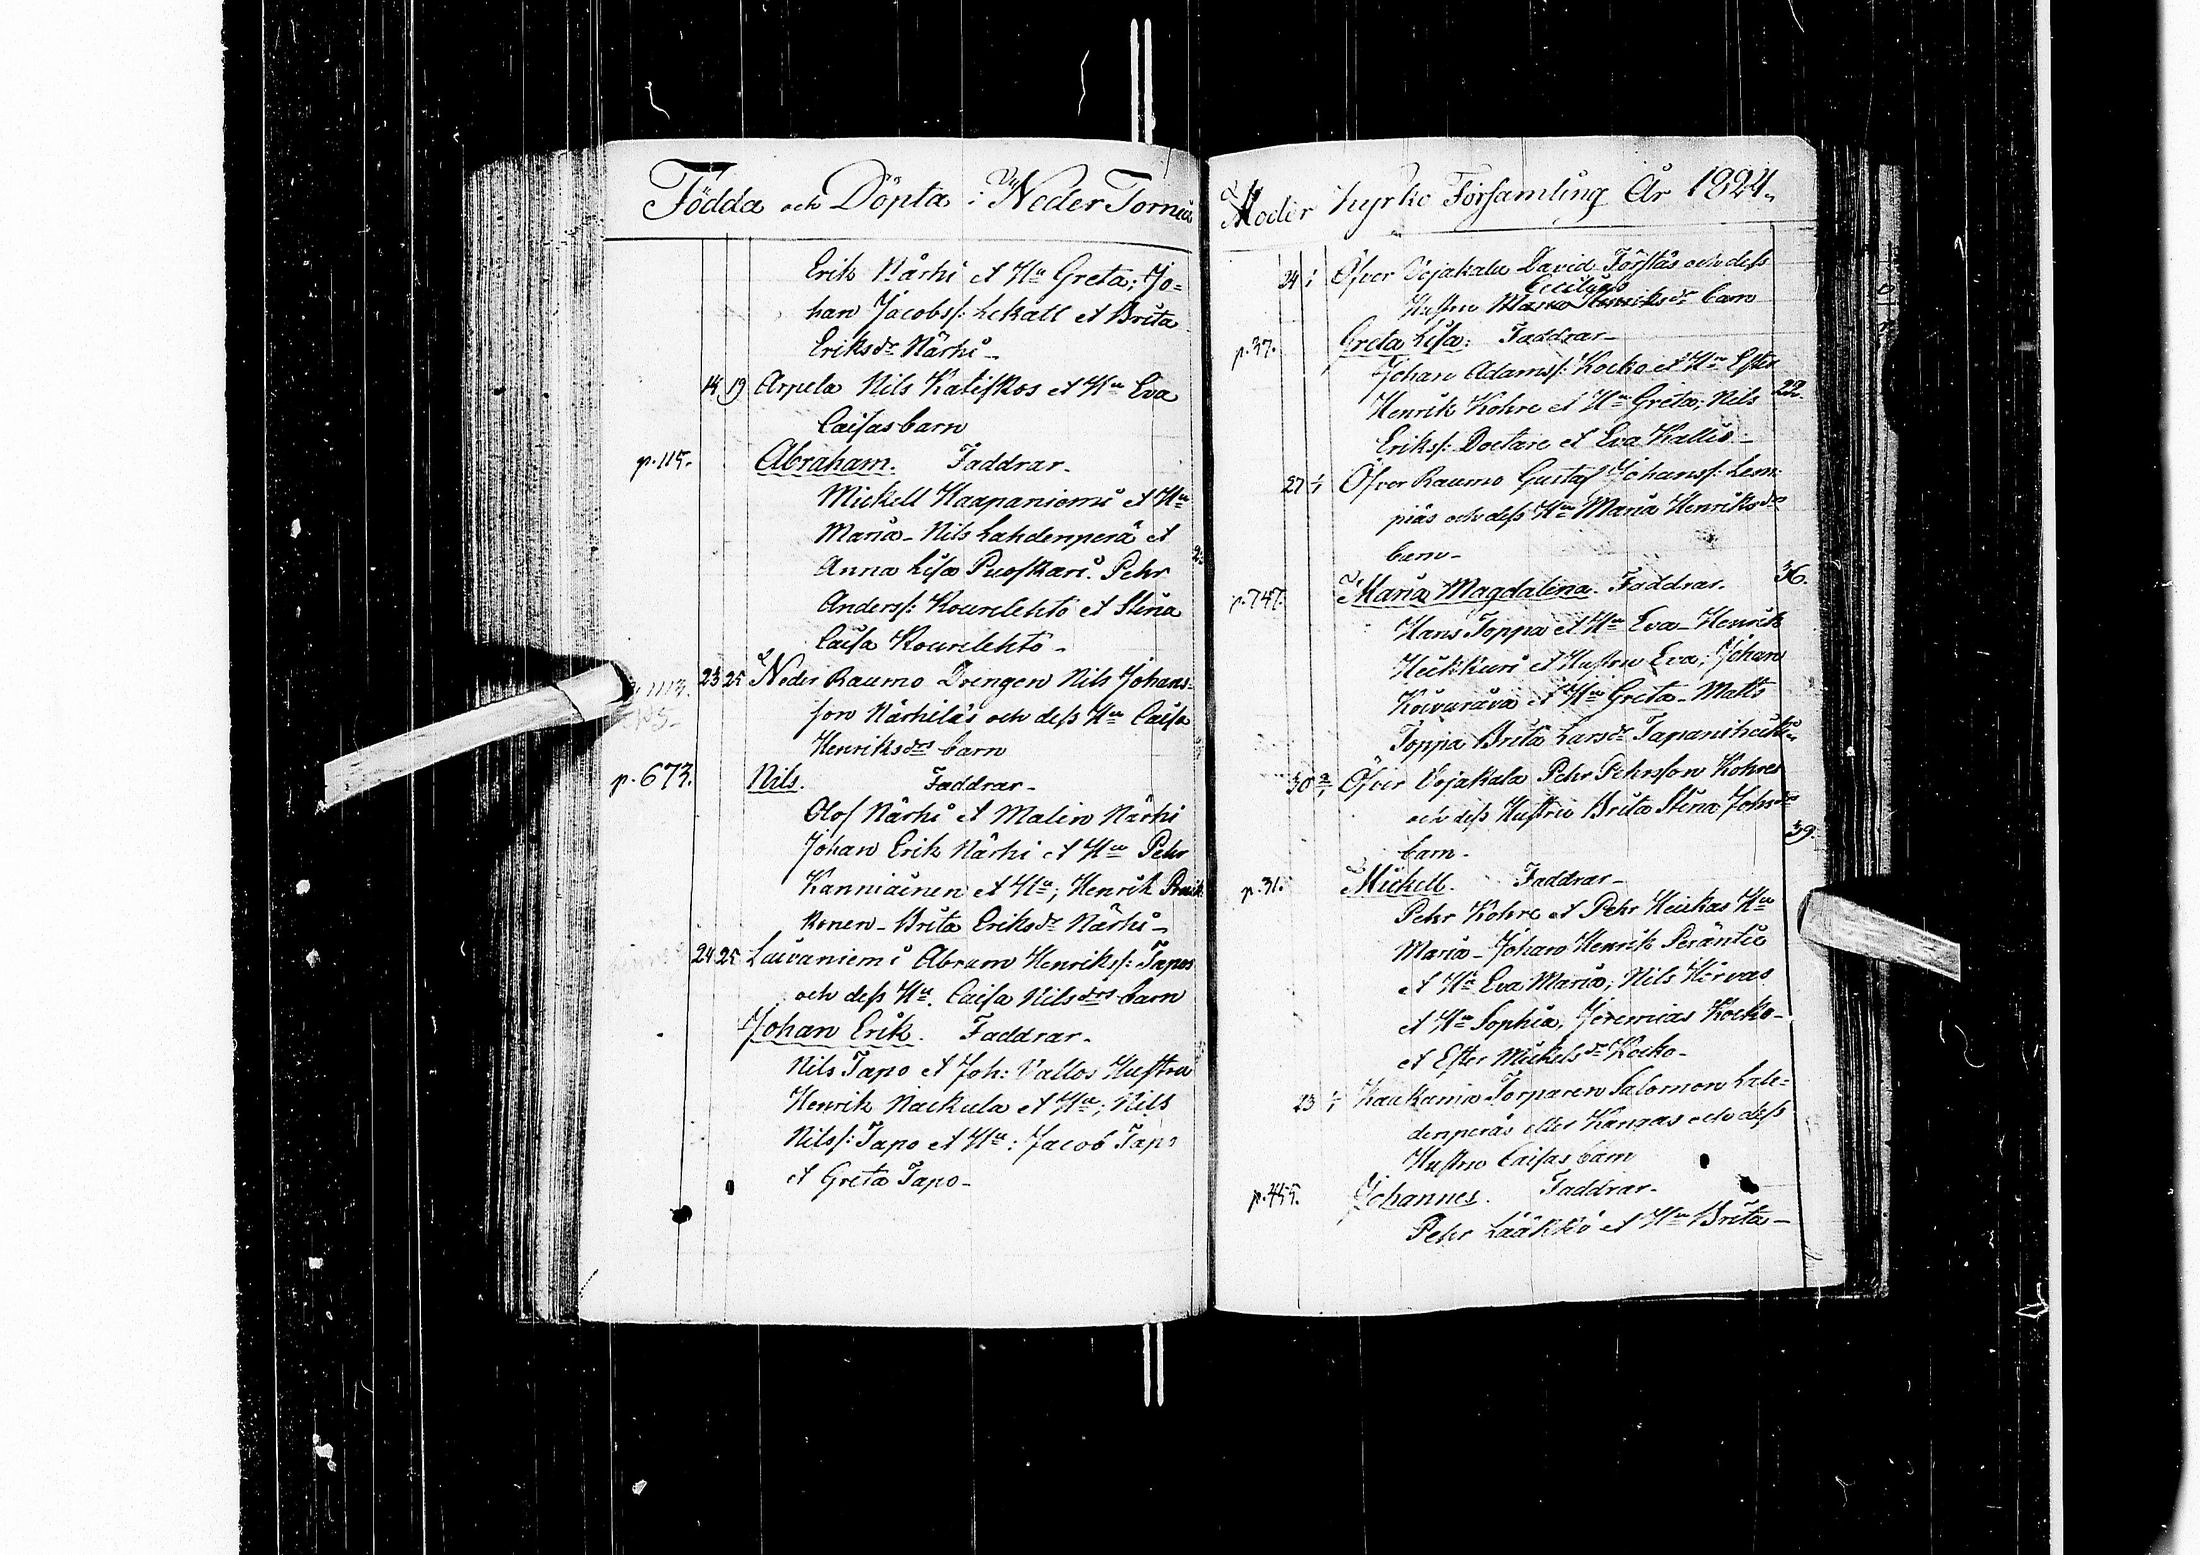 Födda och Döpta i Neder Torneå
Erik Närhi et Hu Greta; Jo=
han Jacobss: Lekatt et Brita
Eriksdr Närhi –
14 19 Arpela Nils Katiskos et Hu Eva
Caisas barn
p. 115. Abraham. Faddrar.
Mickell Haapaniemi et Hu
Maria – Nils Lahdenperä et
Anna Lisa Puoskari. Pehr
Anderss: Kourilehto et Stina
Caisa Kourilehto –
23 25 Neder Raumo Drengen Nils Johans=
son Närhiläs och dess Hu Caisa
Henriksdrs barn
p. 673. Nils. Faddrar –
Olof Närhi et Malin Närhi
Johan Erik Närhi et Hu Pehr
Kanniainen et Hu; Henrik
konen – Brita Eriksdr Närhi –
24 25 Laivaniemi Abram Henrikss: Tapos
och dess Hu. Caisa Nilsdrs barn
Johan Erik. Faddrar.
Nils Tapo et Joh: Vallos Hustru
Henrik Nackula et Hu; Nils
Nilss: Tapo et Hu: Jacob Tapo
et Greta Tapo –
Moder Kyrko Församling År 1824.
24 Öfver Vojakala David Förstås och dess
Cecilias
Hustru Maria Henriksdr barn
p. 37. Greta Lisa: Faddrar –
Johan Adamss: Kocko et Hu Ester
Henrik Kohre et Hu Greta; Nils 22.
Erikss: Doctare et Eva Kallio –
27 Öfver Raumo Gustaf Johanss: Lem=
piäs och dess Hu Maria Henriksdrs
barn –
36.
p. 747. Maria Magdalena. Faddrar.
Hans Toppa et Hu Eva – Henrik
Heikkuri et Hustru Eva; Johan
Koivurova et Hu Greta – Matts
Toppa Brita Larsdr
30 Öfver Vojakala Pehr Pehrsson Kohres
och dess Hustru Brita Stina Johsdrs
39.
barn.
p. 31. Mickell. Faddrar –
Pehr Kohre et Pehr Heikas Hu
Maria – Johan Henrik Peräntie
et Hu Eva Maria; Nils Hirvas
et Hu Sophia, Jeremias Kocko –
et Ester Mickelsdr Kocko –
23 Kaakamo Torparen Salomon Lale=
denperäs eller Kangas och dess
Hustru Caisas barn
p. 455. Johannes. Faddrar –
Pehr Lääkkö et Hu Brita –